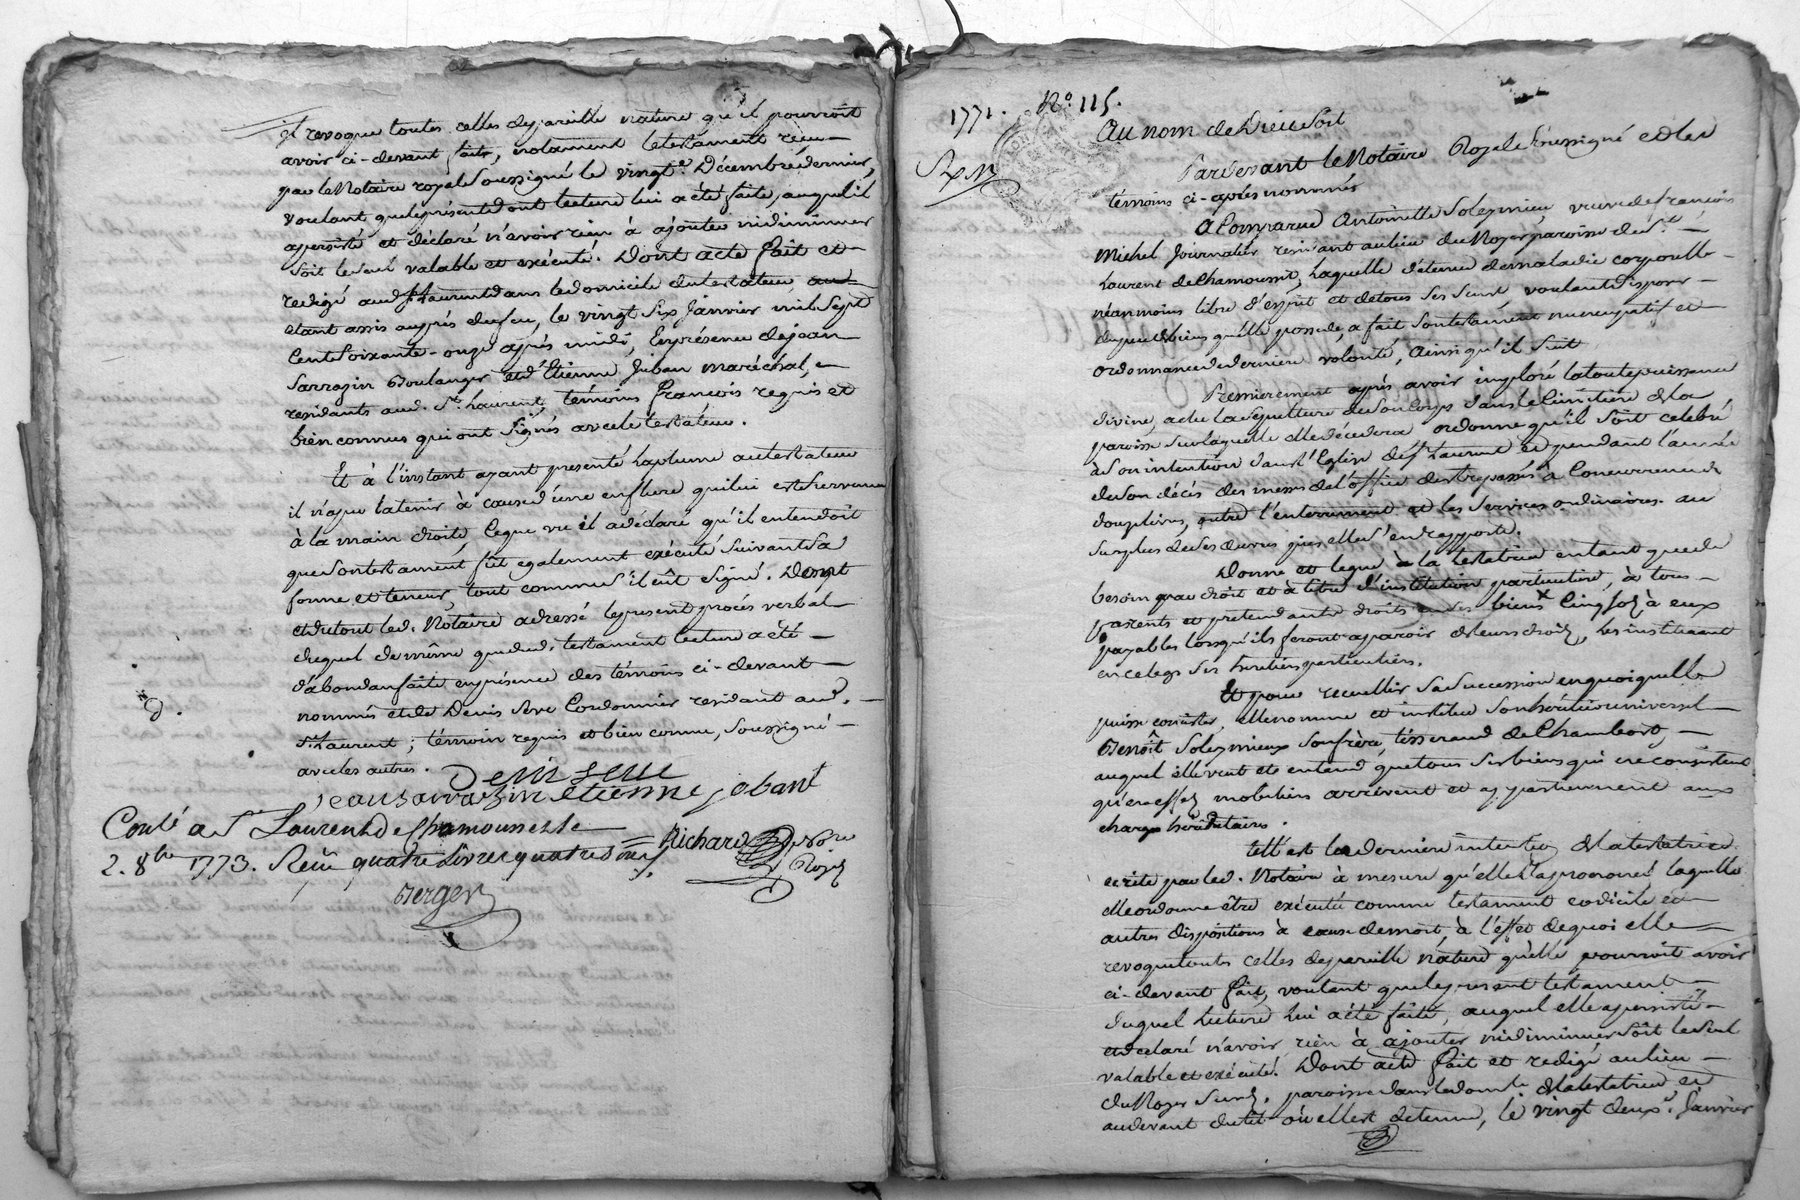 il revoque toutes celles de pareille nature qu'il pourroit
avoir ci-devant faits, notament le testament reçu
par le Notaire royal soussigné le vingt.e Décembre dernier,
voulant que le présent dont lecture lui a été faite, auquel il
a persisté et déclaré n'avoir rien à ajouter ni diminuer
soit le seul valable et exécuté. Dont acte fait et
redigé aud. St. Laurent dans le domicile du testateur
étant assis auprés du feu, le vingt six Janvier mil sept
cent soixante-onze après midi, En présence de jean
Sarrazin Boulanger et d'Etienne Juban maréchal,
residants aud. St. Laurent, témoins françois requis et
bien connus qui ont signés avec le testateur.
Et à l'instant ayant presenté la plume au testateur
il n'a pu la tenir à cause d'une enflure qui lui est survenue
à la main droite, Ce que vu il a déclaré qu'il entendoit
que son testament fût egalement exécuté suivant sa
forme et teneur, tout comme s'il eût signé. Dont
et du tout led. Notaire a dressé le present procés verbal
duquel de même que dud. testament lecture a été
d'abondan faite en présence des témoins ci-devant
nommés et de Denis Seve Cordonnier residant aud.
St. Laurent; témoin requis et bien connu, soussigné
avec les autres.
Denis Seve
jean sarrazin etienne joban
Conlé a St. Laurent de Chamousset le
Richard Nore Royal
2. 8bre 1773. Reçu quatre Livres quatre sous
Berger
1771. No. 115.
Au nom de Dieu Soit
Pardevant le Notaire Royal soussigné et les
témoins ci-aprés nommés
A Comparue Antoinette Soleymieu, veuve de françois
Michel Journalier residant au lieu du Noyer paroisse de St.
Laurent de Chamousset, Laquelle détenue de maladie corporelle
néanmoins libre d'esprit et de tous ses sens voulant disposer
du peu de biens qu'elle possede, a fait son testament nuncupatif et
ordonnance de derniere volonté, ainsi qu'il suit
Premierement après avoir imploré la toute puissance
divine, a élu la sépulture de son corps dans le Cimitiere de la
paroisse sur laquelle elle décédera ordonne qu'il soit celebré
à son intention dans l'Eglise de St. Laurent et pendant l'année
de son décés des messes de l'office des trepassés à Concurrence de
douze livres, outre l'enterrement et les services ordinaires. au
surplus de ses œuvres pies elle s'en rapporte.
Donne et legue la testatrice en tant que de
besoin par droit et à titre d'institution particuliere, à tous
parents et pretendants droits en ses biens x cinq sols à eux
payables lorsqu'ils feront aparoir de leurs droits, les instituant
en ce legs ses heritiers particuliers.
Et pour recueillir sa succession en quoi qu'elle
puisse consister, elle nomme et institue son héritier universel
Benoît Soleymieux son frère, tisserand de Chambost,
auquel elle veut et entend que tous ses biens qui ne consistent
qu'en effets mobiliers arrivent et appartiennent aux
charges héréditaires.
telle est la derniere intention de la testatrice
ecrite par led. Notaire à mesure qu'elle l'a prononcé laquelle
elle ordonne être exécutée comme testament codicile et
autres dispositions à cause de mort, à l'effet de quoi elle
revoque toutes celles de pareille nature qu'elle pourroit avoir
ci-devant fait, voulant que le present testament
duquel lecture lui a été faite, auquel elle a persisté
et déclaré n'avoir rien à ajouter ni diminuer soit le seul
valable et exécuté. Dont acte fait et redigé au lieu
du Noyer susd. paroisse dans le domle. de la testatrice et
audevant du lit où elle est detenue, le vingt deux.e Janvier